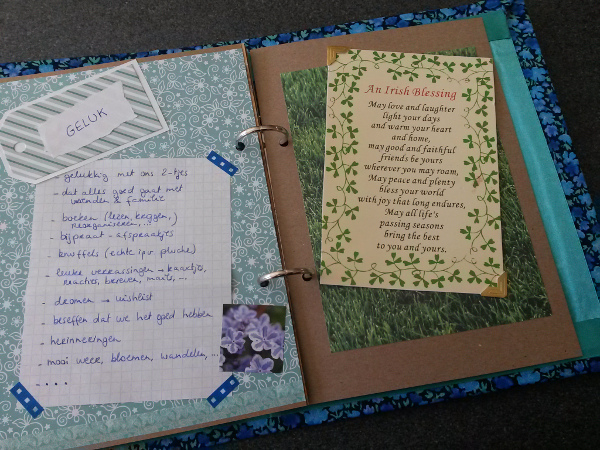 GELUK
- gelukkig met ons 2-tjes
- dat alles goed gaat met
vrienden & familie
- boeken (lezen, leggen,)
reorganiseren, ...
- bijpraat-afspraakjes
- knuffels (echte ipv pluche)
- leuke verrassingen → kaartjes,
reacties, brieven, mails, ...
- dromen → wishlist
- beseffen dat we het goed hebben
- herinneringen
- mooi weer, bloemen, wandelen, ...
- . . . .
An Irish Blessing
May love and laughter
light your days
and warm your heart
and home,
may good and faithful
friends be yours
wherever you may roam,
May peace and plenty
bless your world
with joy that long endures,
May all life's
passing seasons
bring the best
to you and yours.